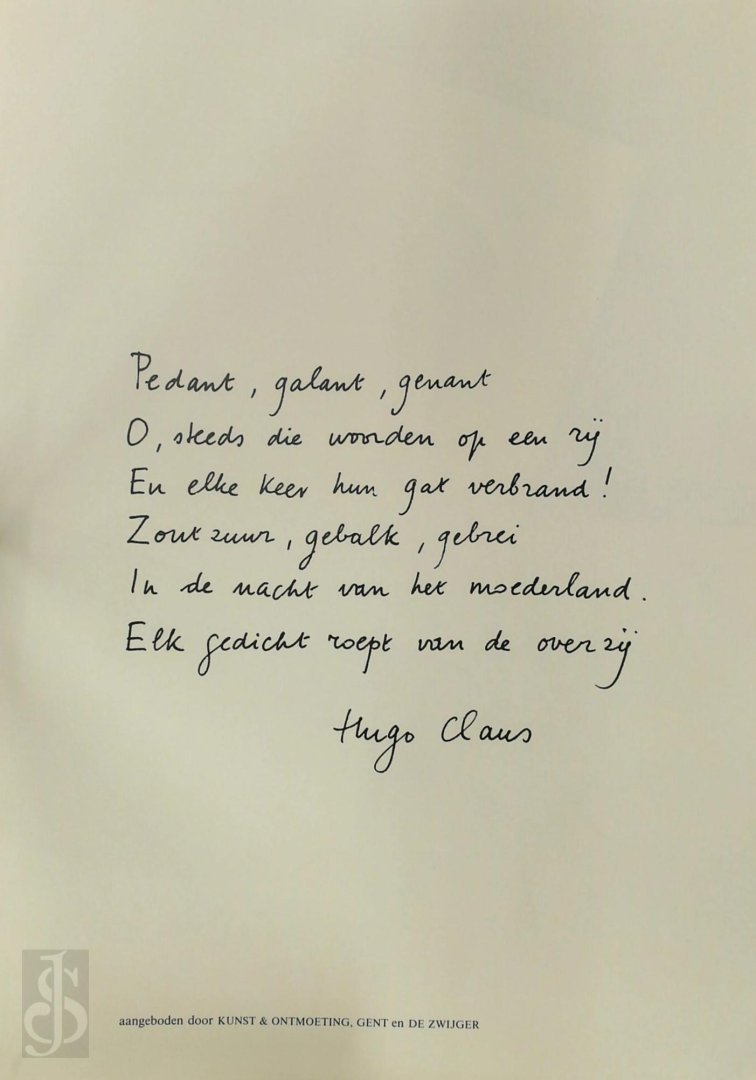 Pedant, galant, genant
O, steeds die woorden op een rij
En elke keer hun gat verbrand!
Zoutzuur, gebalk, gebrei
In de nacht van het moederland.
Elk gedicht roept van de overzij
Hugo Claus
aangeboden door KUNST & ONTMOETING, GENT en DE ZWIJGER